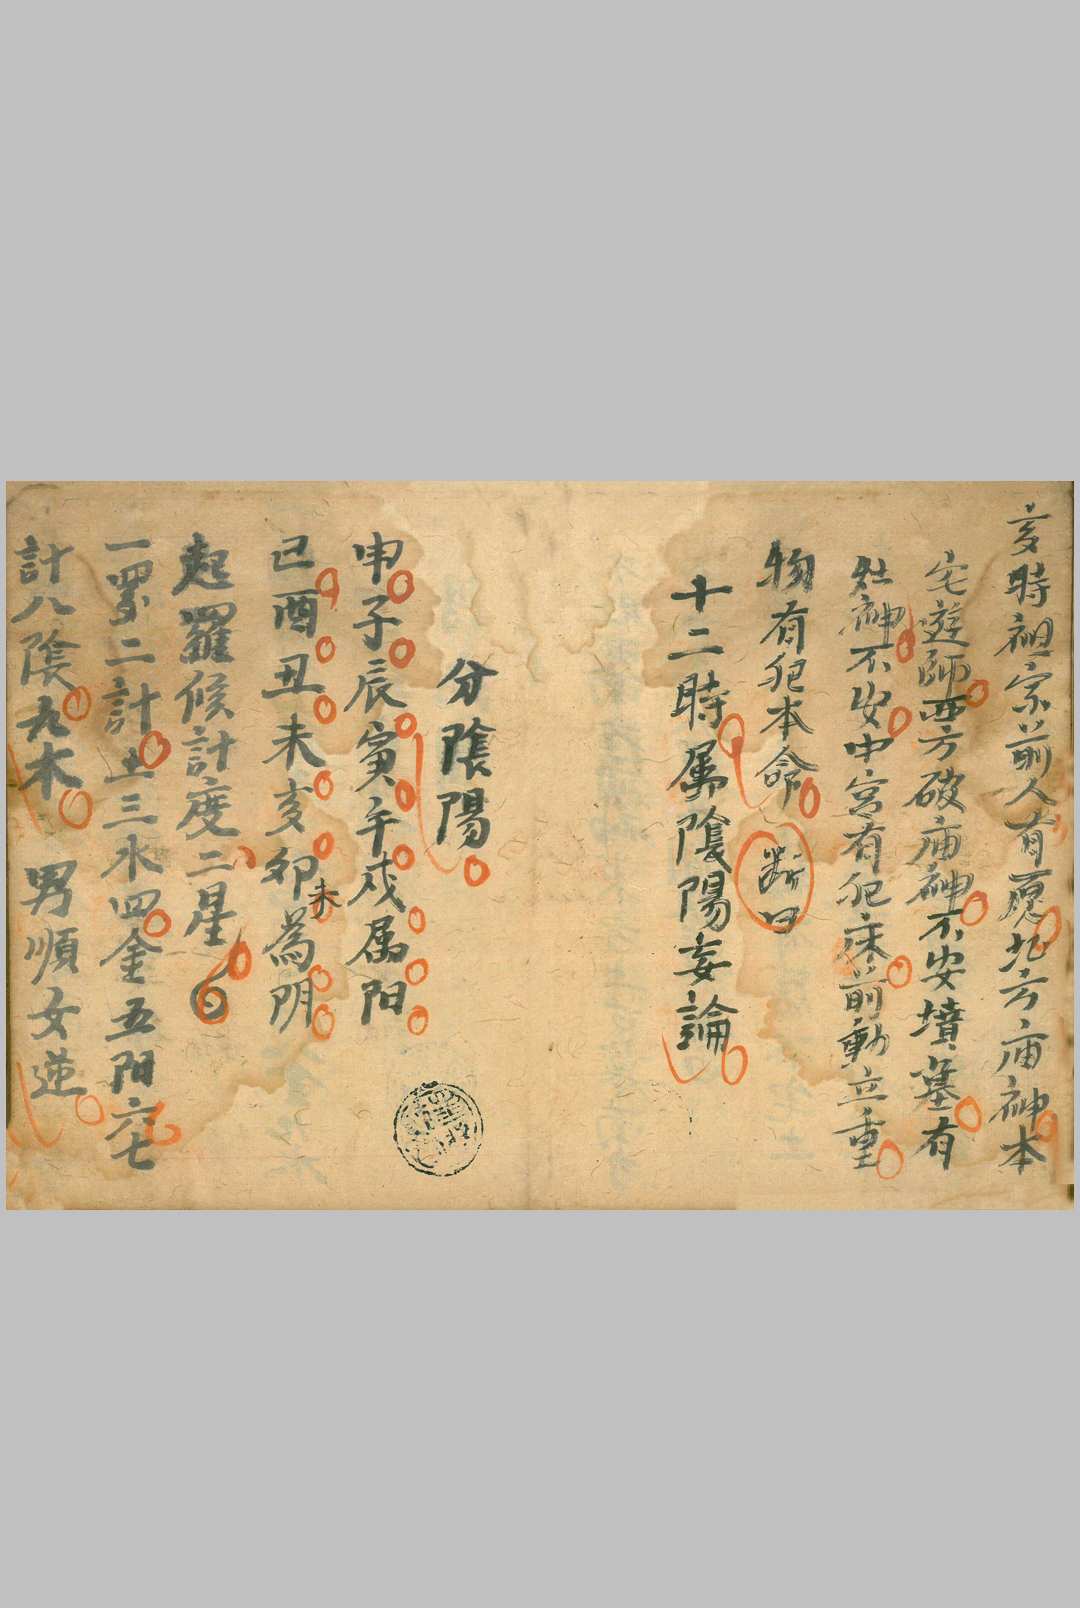 亥時祖宗前人有愿北方庙神本
宅遊師西方破庙神不安墳墓有
灶神不安中宮有犯床前動立重
物有犯本命 断曰
十二時属陰陽妄論
分陰陽
申子辰寅午戌属阳
巳酉丑未亥卯為阴
未
起羅候計度二星曰
一罗二計土三水四金五阳六七
計八陰九木 男順女逆